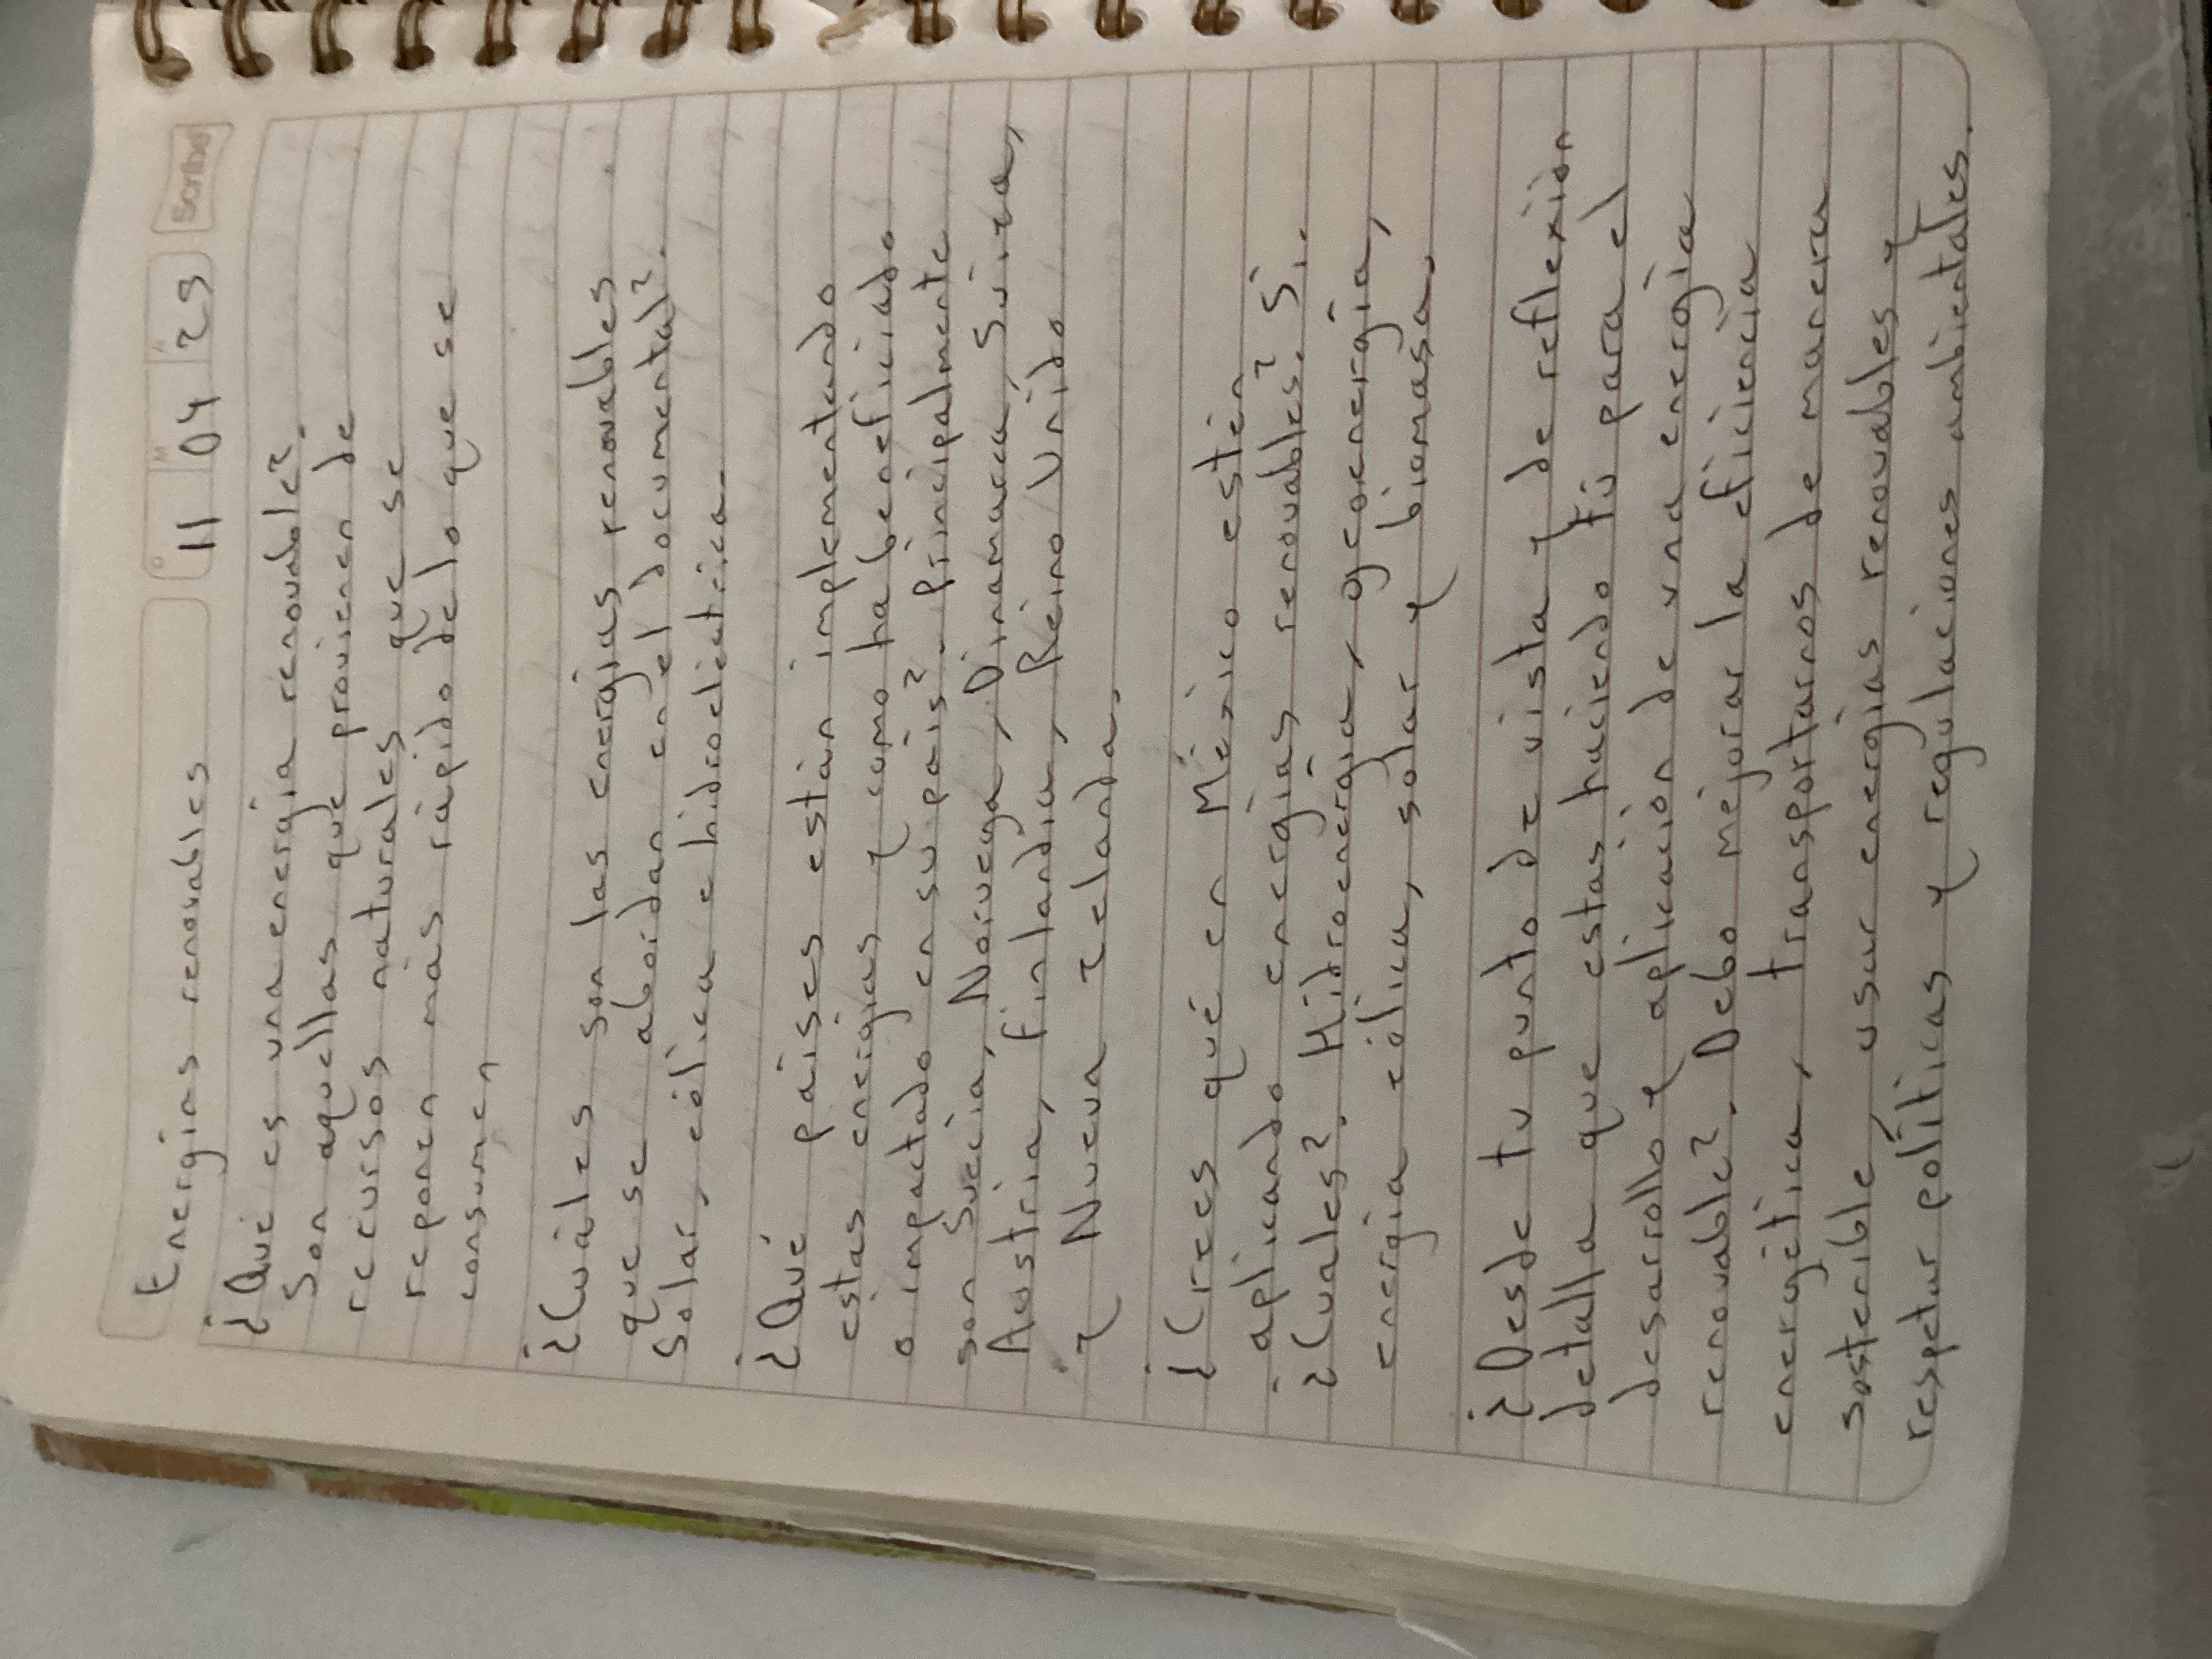 Energias renovables
D M A
11 04 23
Scribe
¿Qué es una energia renovable?.
Son aquellas que provienen de
recursos naturales que se
reponen más rápido de lo que se
consumen
¿Cuáles son las energias renovables
que se abordan en el documental?.
Solar, eólica e hidroeléctrica.
¿Qué paises están implementando
estas energias y como ha beneficiado
o impactado en su país?. Principalmente
son Suecia, Noruega, Dinamarca, Suiza,
Austria, Finlandia, Reino Unido
y Nueva Zelanda.
¿Crees qué en México estén
aplicando energías renovables?. Si.
¿Cuales?. Hidroenergía, geoenergia,
energia eólica, solar y biomasa.
¿Desde tu punto de vista y de reflexión
detalla que estas haciendo tú para el
desarrollo y aplicación de una energía
renovable?. Debo mejorar la eficiencia
energética, transportarnos de manera
sostenible, usar energías renovables y
respetar políticas y regulaciones ambientales.